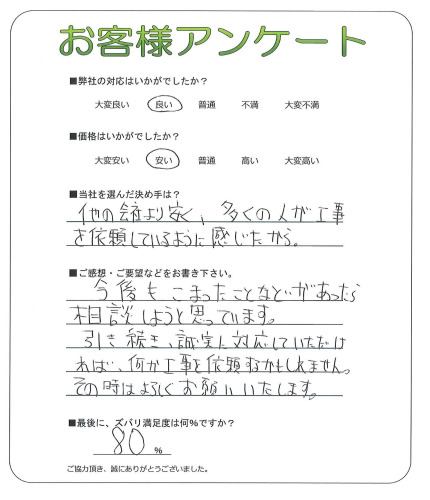 お客様アンケート
■弊社の対応はいかがでしたか?
大変良い 良い 普通 不満 大変不満
■価格はいかがでしたか?
大変安い 安い 普通 高い 大変高い
■当社を選んだ決め手は?
他の会社より安く、多くの人が工事
を依頼しているように感じたから。
■ご感想・ご要望などをお書き下さい。
今後もこまったことなどがあったら
相談しようと思っています。
引き続き、誠実に対応していただけ
れば、何か工事を依頼するかもしれません。
その時はよろしくお願いいたします。
■最後に、ズバリ満足度は何%ですか?
80 %
ご協力頂き、誠にありがとうございました。